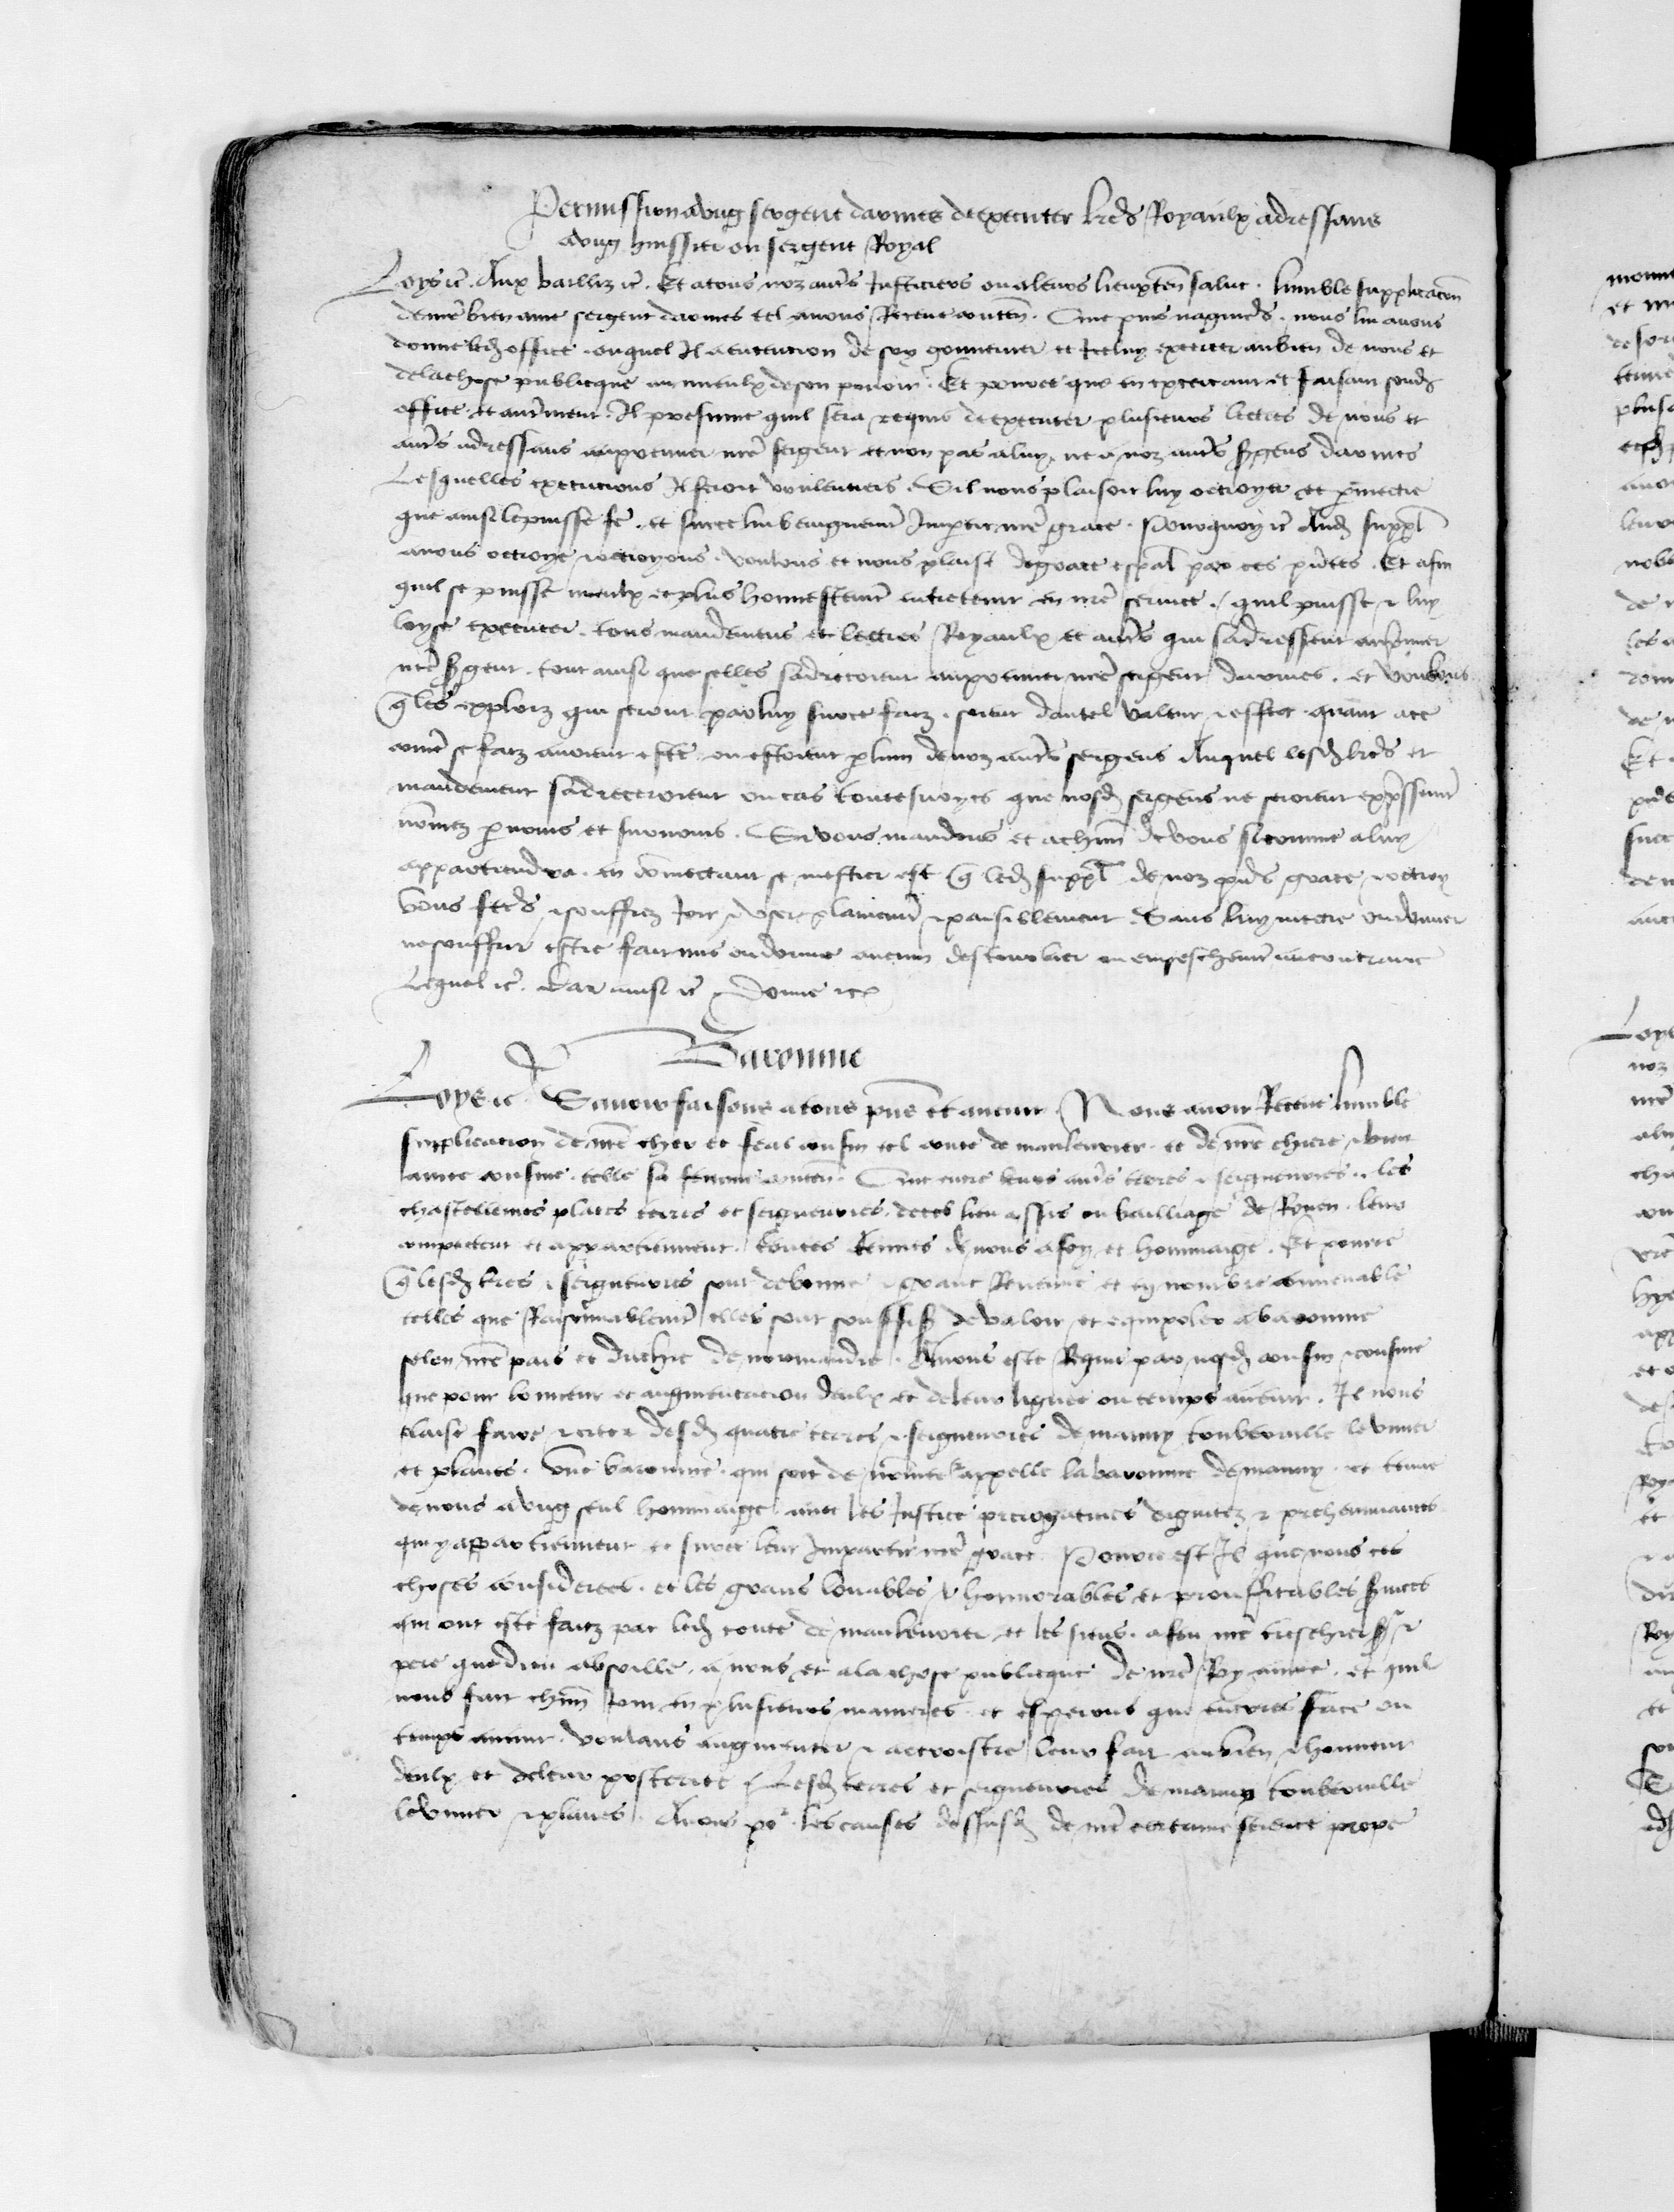 Permission a ung sergent darmes de executer lrēs Royaulx adressans
a ung huissier ou sergent Royal
Loys ec̄. Aux bailliz ec̄. Et a tous noz autr̄s Justiciers ou a leurs lieuxten̄ salut. humble supplicacōn
de nr̄e bien ame sergent darmes tel avons Receue conten̄. Que puis nagueres. nous lui avons
donne led̄ office. ouquel Il a entencion de soy gouverner et Icelluy exercer au bien de nous et
de la chose publicque au mieulx de son povoir. Et pource que en exercant et faisant sond̄
office et autrement. Il presume quil sera requis de executer plusieurs lectres de nous et
autr̄s adressans au premier nr̄e sergent et non pas a luy ne a noz autr̄s s̄gens darmes
Lesquelles execucions Il feroit voulentiers. Sil nous plaisoit luy octroyer et p̄mectre
que ainsi le puisse fē. et surce lui benignemt̄ Impartir nr̄e grace. Pourquoy ec̄ Aud̄ suppl̄
avons octroye & octroyons. voulons et nous plaist de grace esp̄al par ces pn̄tes. Et afin
quil se puisse mieulx et plus honnestemt̄ entretenir en nr̄e service. quil puisse & luy
loyse executer. tous mandemens et lectres Royaulx et autr̄s qui sadressent au premier
nr̄e s̄gent. tout ainsi que selles sadrecoient au premier nr̄e sergent darmes. et voulons
q̄ les exploiz qui seront par luy surce faiz. soient dautel valeur & effect quant a ce
com̄e se faiz avoient este ou estoient p̄ lun de noz autr̄s sergens Auquel lesd̄ lrēs et
mandement sadreceroient ou cas toutesvoyes que nosd̄ sergens ne seroient exp̄ssemt̄
nōmez p̄ noms et surnoms. Si vous mandons et a chūn de vous si comme a luy
appartiendra. en cōmectant se mestier est q̄ led̄ suppl̄ de noz pn̄s grace & octroy
vous fectes & souffrez Joir & user plainemt̄ & paisiblement. Sans luy mectre ou donner
ne souffrir estre fait mis ou donne aucun destourbier ou empeschemt̄ au contraire
Lequel ec̄. Car ainsi ec̄ Donne etc
Baronnie
Loys ec̄. Savoir faisons a tous pn̄s et avenir. Nous avoir Receue humble
supplicacion de nr̄e cher et feal cousin tel conte de maulevrier. et de nr̄e chiere & bien
amee cousine. telle sa femme conten̄. Que entre leurs autr̄s terres & seigneuries. les
chastellenies places terres et seigneuries. de tes lieu assis ou bailliage de Rouen. leur
competent et appartiennent. toutes tenues de nous a foy et hommaige. Et pource
q̄ lesd̄ tres & seigneuries sont de bonne & grant Revenue et en nombre convenable
telles que Raisonnablemt̄ elles sont souffis̄ de valoir et equipoler a baronnie
selon nr̄e pais et duchie de normandie. Avons este Requis par nosd̄ cousin & cousine
que pour lonneur et augmentacion deulx et de leur lignee ou temps avenir. Il nous
plaise faire & creer desd̄ quatre terres & seigneuries de mauny touberville le vivier
et planes. une baronnie. qui soit de nōmee & appellee la baronnie de mauny. et tenue
de nous a ung seul hommaige avec les Justice prerogatives dignitez & preheminances
qui y appartiennent et surce leur Impartir nr̄e grace. Pource est Il que nous ces
choses considerees. et les grans louables & honnorables et prouffitables s̄vices
qui ont este faiz par led̄ conte de maulevrier et les siens. a feu nr̄e treschier s̄r &
pere que dieu absoille. a nous et a la chose publicque de nr̄e Royaume. et quil
nous fait chūn Jour en plusieurs manieres. et esperons que encores face ou
temps avenir. voulans augmenter & accroistre leur fait au bien & honneur
deulx et de leur posterite Lesd̄ terres et seigneuries de mauny touberville
le vivier & planes. Avons po les causes dessusd̄ de nr̄e certaine science prope